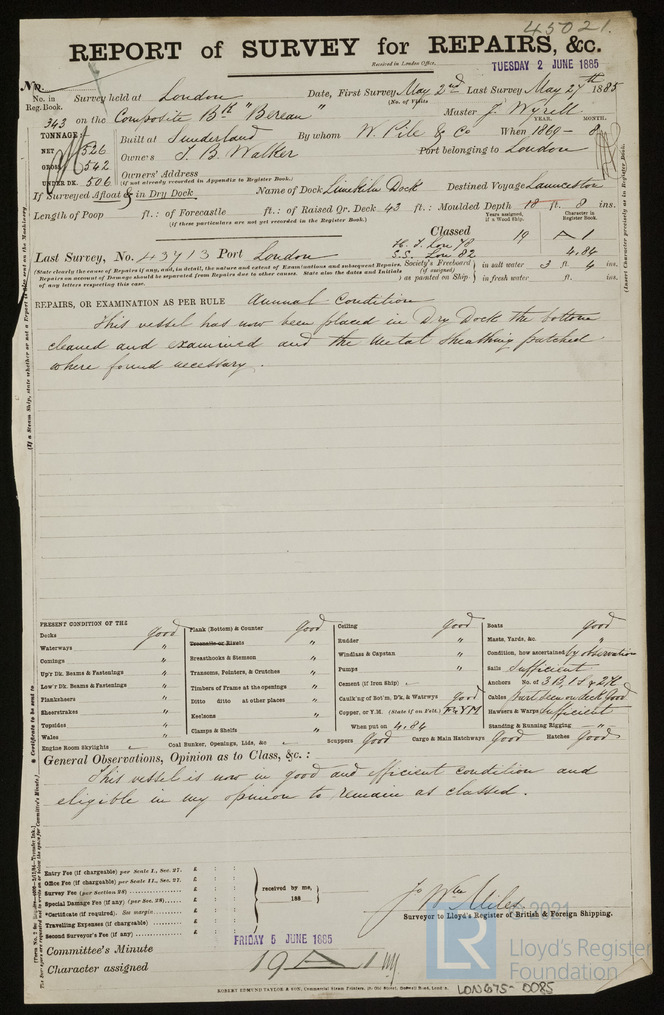 45021.
REPORT of SURVEY for REPAIRS, &c.
Received in London Office, TUESDAY 2 JUNE 1885
No.
No. in Reg. Book. Survey held at London Date, First Survey May 2nd Last Survey May 27th 1885
(No. of Visits
343 on the Composite Bk "Berean" Master J. Wyrell
TONNAGE
NET 526
GROSS 542
UNDER DK. 506
Built at Sunderland By whom W. Pile & Co When 1869 - 8 YEAR. MONTH.
Owners T. B. Walker Port belonging to London
Owners' Address
(if not already recorded in Appendix to Register Book.)
If Surveyed Afloat & in Dry Dock. Name of Dock Limekiln Dock Destined Voyage Launceston
Length of Poop ft.: of Forecastle ft.: of Raised Qr. Deck 43 ft.: Moulded Depth 18 ft. 8 ins.
(if these particulars are not yet recorded in the Register Book.)
Years assigned, if a Wood Ship. Character in Register Book.
Classed 19 A 1
4.84
Last Survey, No. 43713 Port London
S.S. Lon 82
(State clearly the cause of Repairs if any, and, in detail, the nature and extent of Examinations and subsequent Repairs. Repairs on account of Damage should be separated from Repairs due to other causes. State also the Dates and Initials of any letters respecting this case.
Society's Freeboard (if assigned) as painted on Ship. in salt water 3 ft. 4 ins.
in fresh water ft. ins.
REPAIRS, OR EXAMINATION AS PER RULE Annual Condition
This vessel has now been placed in Dry Dock the bottom
cleaned and examined and the metal sheathing patched
where found necessary.
PRESENT CONDITION OF THE
Decks Good
Waterways "
Comings "
Up'r Dk. Beams & Fastenings "
Low'r Dk. Beams & Fastenings "
Planksheers "
Sheerstrakes "
Topsides "
Wales "
Engine Room Skylights
Plank (Bottom) & Counter Good
Treenails or Rivets "
Breasthooks & Stemson "
Transoms, Pointers, & Crutches "
Timbers of Frame at the openings "
Ditto ditto at other places "
Keelsons "
Clamps & Shelfs "
Coal Bunker, Openings, Lids, &c
Ceiling Good
Rudder "
Windlass & Capstan "
Pumps "
Cement (if Iron Ship)
Caulk'ng of Bot'm, D'k, & Waterwys Good
Copper, or Y.M. (State if on Felt.) F & YM
When put on 4.84
Scuppers Good Cargo & Main Hatchways Good Hatches Good
Boats Good
Masts, Yards, &c. "
Condition, how ascertained by observation
Sails Sufficient
Anchors No. of 3 B, 1 S & 2 K
Cables Good
Hawsers & Warps Sufficient
Standing & Running Rigging "
General Observations, Opinion as to Class, &c. :
This vessel is now in good and efficient condition and
eligible in my opinion to remain as classed.
Entry Fee (if chargeable) per Scale I., Sec. 27. £ : :
Office Fee (if chargeable) per Scale II., Sec. 27. £ : :
Survey Fee (per Section 28) £ : :
Special Damage Fee (if any) (per Sec. 28) £ : :
*Certificate (if required). See margin £ : :
Travelling Expenses (if chargeable) £ : :
Second Surveyor's Fee (if any) £ : :
received by me,
188
Jo Wm Miles
Surveyor to Lloyd's Register of British & Foreign Shipping.
Committee's Minute FRIDAY 5 JUNE 1885
Character assigned 19 A 1
ROBERT EDMUND TAYLOR & SON, Commercial Steam Printers, 19, Old Street, Goswell Road, London.
LON675-0085
2021
LR
Lloyd's Register
Foundation
(If a Steam Ship, state whether or not a Report is also sent on the Machinery.
(Insert Character precisely as in Register Book.
* Certificate to be sent to